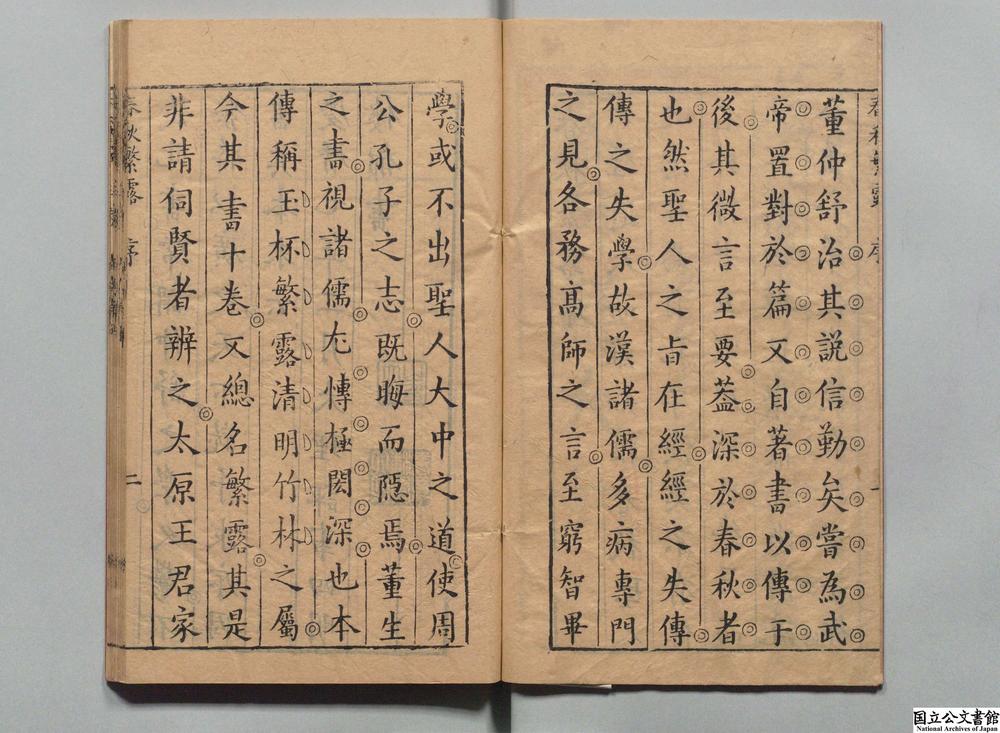 春秋繁露 序 一
董仲舒治其説信勤矣嘗為武
帝置對於篇又自著書以傳于
後其微言至要蓋深於春秋者
也然聖人之旨在經經之失傳
傳之失學故漢諸儒多病專門
之見各務髙師之言至窮智畢
學或不出聖人大中之道使周
公孔子之志既晦而隠焉董生
之書視諸儒尤慱極閎深也本
傳稱玉杯繁露清明竹林之屬
今其書十卷又總名繁露其是
非請伺賢者辨之太原王君家
春秋繁露 序 二
国立公文書館
National Archives of Japan